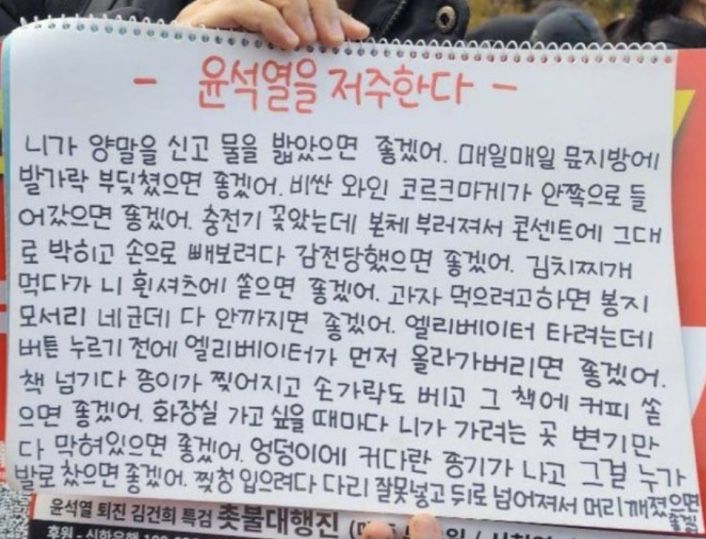 - 윤석열을 저주한다 -
니가 양말을 신고 물을 밟았으면 좋겠어. 매일매일 문지방에
발가락 부딪쳤으면 좋겠어. 비싼 와인 코르크마게가 안쪽으로 들
어갔으면 좋겠어. 충전기 꽂았는데 본체 부러져서 콘센트에 그대
로 박히고 손으로 빼보려다 감전당했으면 좋겠어. 김치찌개
먹다가 니 흰셔츠에 쏟으면 좋겠어. 과자 먹으려고하면 봉지
모서리 네군데 다 안까지면 좋겠어. 엘리베이터 타려는데
버튼 누르기 전에 엘리베이터가 먼저 올라가버리면 좋겠어.
책 넘기다 종이가 찢어지고 손가락도 베고 그 책에 커피 쏟
으면 좋겠어. 화장실 가고 싶을 때마다 니가 가려는 곳 변기만
다 막혀있으면 좋겠어. 엉덩이에 커다란 종기가 나고 그걸 누가
발로 찼으면 좋겠어. 찢청 입으려다 다리 잘못넣고 뒤로 넘어져서 머리 깨졌으면
좋겠어
윤석열 퇴진 김건희 특검 촛불대행진
후원 - 신한은행